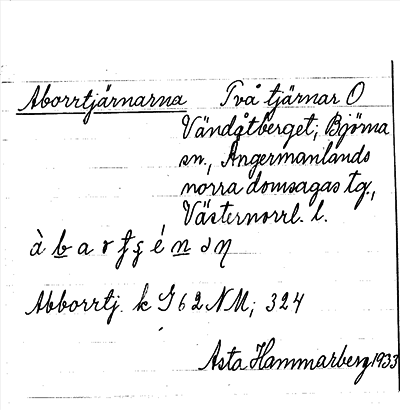 Aborrtjärnarna Två tjärnar O
Vändåtberget, Björna
sn., Ångermanlands
norra domsagas tg.,
Västernorrl. l.
Abborrtj. k G 62 NM; 324
Asta Hammarberg 1933